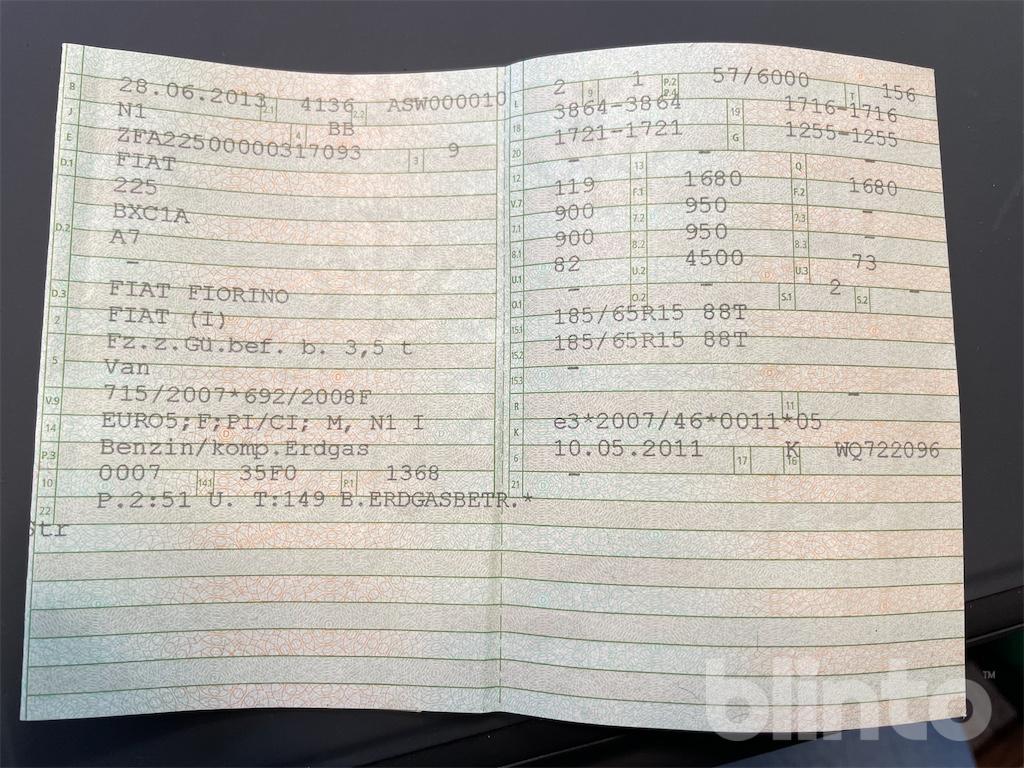 B 28.06.2013 2.1 4136 2.2 ASW000010
J N1 4 BB
E ZFA22500000317093 3 9
D.1 FIAT
225
D.2 BXC1A
A7
–
D.3 FIAT FIORINO
2 FIAT (I)
Fz.z.Gü.bef. b. 3,5 t
5 Van
V.9 715/2007*692/2008F
14 EURO5;F;PI/CI; M, N1 I
P.3 Benzin/komp.Erdgas
10 0007 14.1 35F0 P.1 1368
22 P.2:51 U. T:149 B.ERDGASBETR.*
Str
L 2 9 1 P.2 P.4 57/6000 T 156
18 3864-3864 19 1716-1716
20 1721-1721 G 1255-1255
12 – 13 – Q –
V.7 119 F.1 1680 F.2 1680
7.1 900 7.2 950 7.3 –
8.1 900 8.2 950 8.3 –
U.1 82 U.2 4500 U.3 73
O.1 – O.2 – S.1 2 S.2 –
15.1 185/65R15 88T
15.2 185/65R15 88T
15.3 –
R 11 –
K e3*2007/46*0011*05
6 10.05.2011 17 K 16 WQ722096
21 –
blinto™